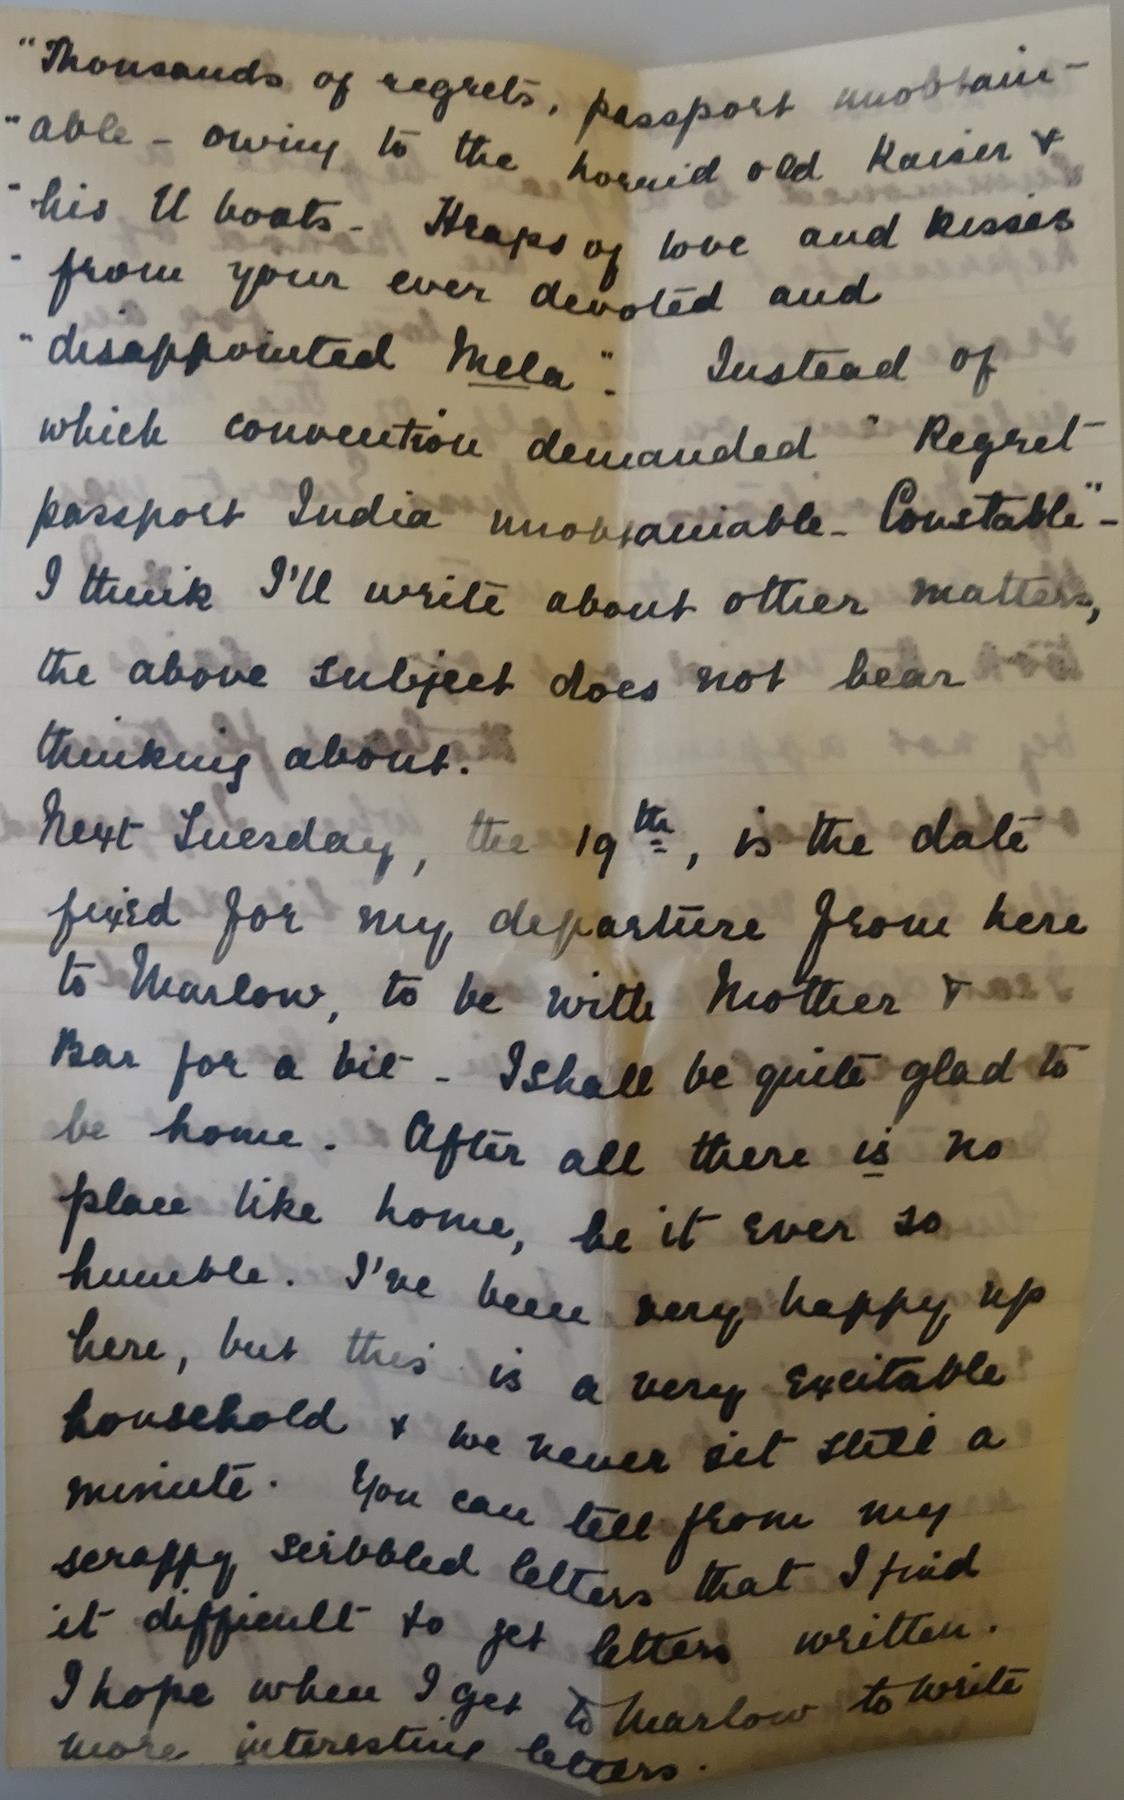 "Thousands of regrets, passport unobtain-
"able - owing to the horrid old Kaiser &
"his U boats. Heaps of love and kisses
" from your ever devoted and
"disappointed Mela". Instead of
which convention demanded "Regret
passport India unobtainable - Constable" -
I think I'll write about other matters,
the above subject does not bear
thinking about.
Next Tuesday, the 19th, is the date
fixed for my departure from here
to Marlow, to be with Mother &
Bar for a bit - I shall be quite glad to
be home. After all there is no
place like home, be it ever so
humble. I've been very happy up
here, but this is a very excitable
household & we never sit still a
minute. You can tell from my
scrappy scribbled letters that I find
it difficult to get letters written.
I hope when I get to Marlow to write
more interesting letters.